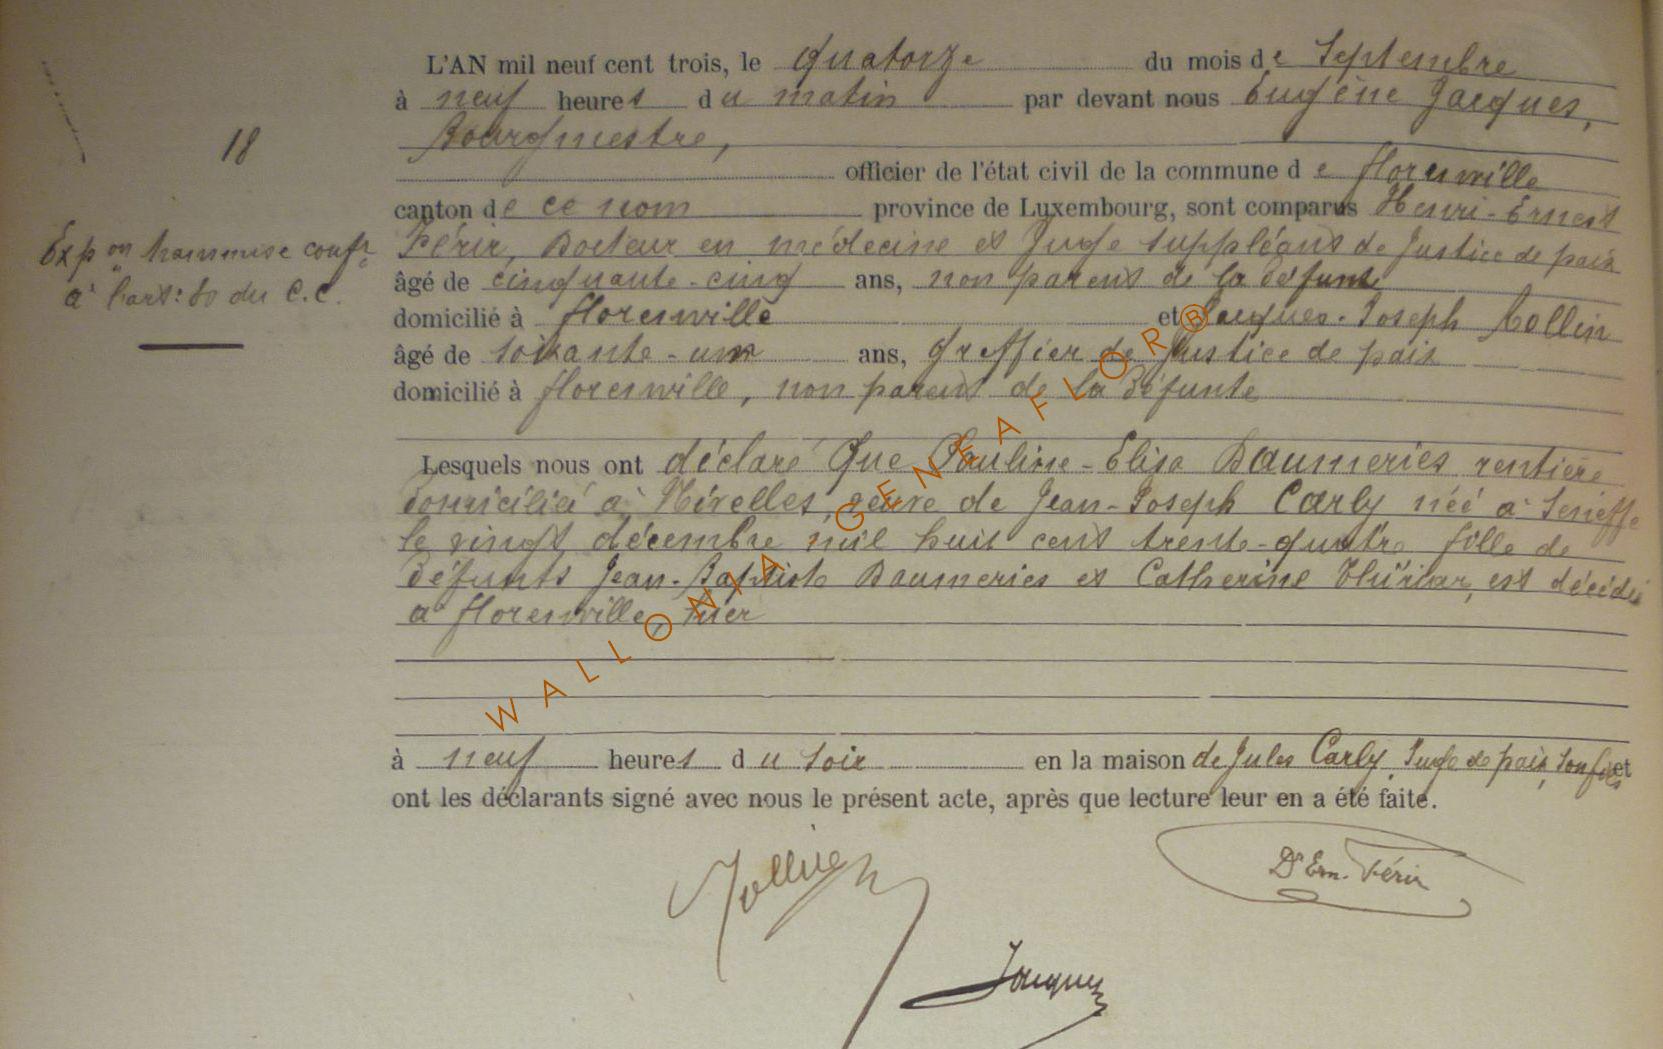 L'AN mil neuf cent trois, le quatorze du mois de Septembre
à neuf heures du matin par devant nous Eugène Jacques,
Bourgmestre,
18
officier de l'état civil de la commune de florenville
canton de ce nom province de Luxembourg, sont comparus Henri-Ernest
Expon transmise confr
Férir, Docteur en médecine et Juge suppléant de Justice de paix
à l'art: 80 du C.C.
âgé de cinquante-cinq ans, non parent de la défunte
domicilié à florenville et Jacques-Joseph Collin
âgé de soixante-un ans, Greffier de Justice de paix
domicilié à florenville, non parent de la défunte
Lesquels nous ont déclaré que Pauline-Elisa Baumeries rentière
domiciliée à Nivelles, veuve de Jean-Joseph Carly née à Seneffe
le vingt décembre mil huit cent trente-quatre fille de
défunts Jean-Baptiste Baumeries et Catherine, est décédée
à florenville, hier
WALLONIA GENEAFLOR®
à neuf heures du soir en la maison de Jules Carly, Juge de paix, son fils et
ont les déclarants signé avec nous le présent acte, après que lecture leur en a été faite.
Collin
Dr Ern. Férir
Jacques